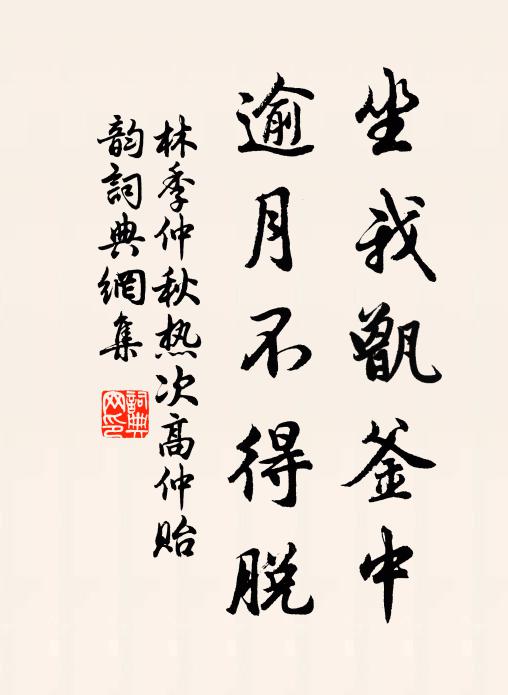 坐我甑釜中
逾月不得脱
林季仲秋热次高仲贻
韵詞典網集
詞典网印